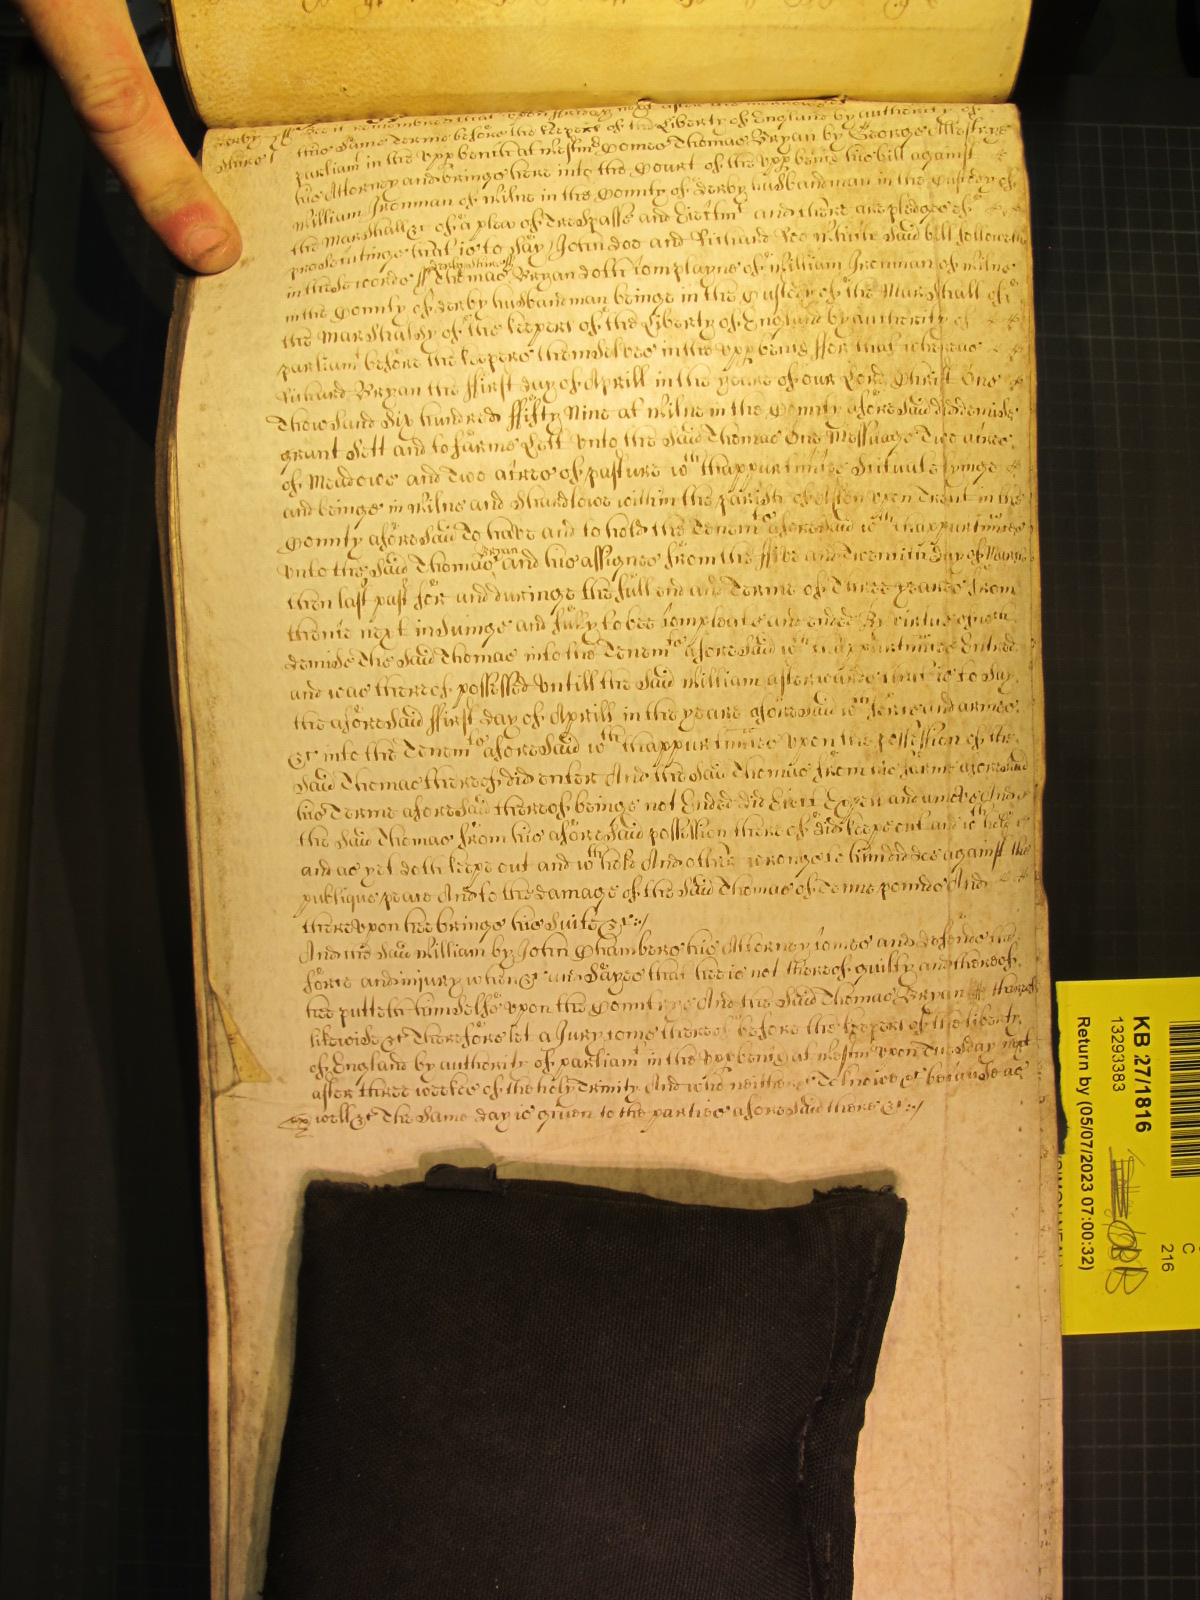 Derby ss Bee it remembred that upon Friday next after the morrow of
shire this same Terme before the keepers of the Liberty of England by authority of
parliamt in the upp bench at Westmr Comes Thomas Bryan by George Allestrye
his Attorney and brings here into the Court of the upp bench his bill against
William Ironman of Milne in the County of Derby husbandman in the Custody of
the Marshall &c of a plea of Trespasse and Eiectmt and there are pledges of
prosecutinge that is to say John doe and Richard Roe which said bill followeth
in these words ss Derbyshire ss Thomas Bryan doth complayne of William Ironman of Milne
in the County of derby husbandman beinge in the Custody of the Marshall of
the Marshalsy of the keepers of the Liberty of England by authority of
parliamt before the keepers themselves in the upp bench ffor that whereas
Richard Bryan the ffirst day of Aprill in the yeare of our Lord Christ One
Thowsand Six hundred ffifty Nine at Milne in the County aforesaid did demise
grant Sett and to farme Lett unto the said Thomas One Messuage Two acres
of Meadowe and Two acres of pasture wth thappurtnnces Scituate lyinge
and beinge in Milne and Shardlowe within the parish of Aston upon Trent in the
County aforesaid To have and to hold the Tenemts aforesaid wth thappurtnnces
unto the said Thomas Bryan and his assignes from the ffive and Twentith day of March
then last past for and duringe the full end and Terme of Three yeares from
thence next insuinge and fully to bee compleate and ended By virtue of wch
demise The said Thomas into the Tenemts aforesaid wth thappurtnnces Entred
and was thereof possessed untill the said William afterwards that is to say
the aforesaid ffirst day of Aprill in the yeare aforesaid wth force and armes
&c into the Tenemts aforesaid wth thappurtnnces upon the possession of the
said Thomas thereof did enter And the said Thomas from the farme aforesaid
his Terme aforesaid thereof beinge not Ended did Eiect Expell and amove And
the said Thomas from his aforesaid possession thereof did keepe out and wthhold
and as yet doth keepe out and wthhold And other wronge to him did doe against the
publique peace And to the damage of the said Thomas of Tenne pounds And
thereupon hee brings his Suite &c
And the said William by John Chambers his Attorney comes and defends the
force and injury when &c and sayes that hee is not thereof guilty and thereof
hee putteth himselfe upon the Countrye And the said Thomas Bryan thereof
likewise &c Therefore let a Jury come thereof before the keepers of the liberty
of England by authority of parliamt in the upp bench at Westmr upon Tuesday next
after three weekes of the holy Trinity And who neither &c To knowe &c because as
well &c The same day is given to the parties aforesaid there &c
KB 27/1816
13293383
Return by (05/07/2023 07:00:32)
C
216